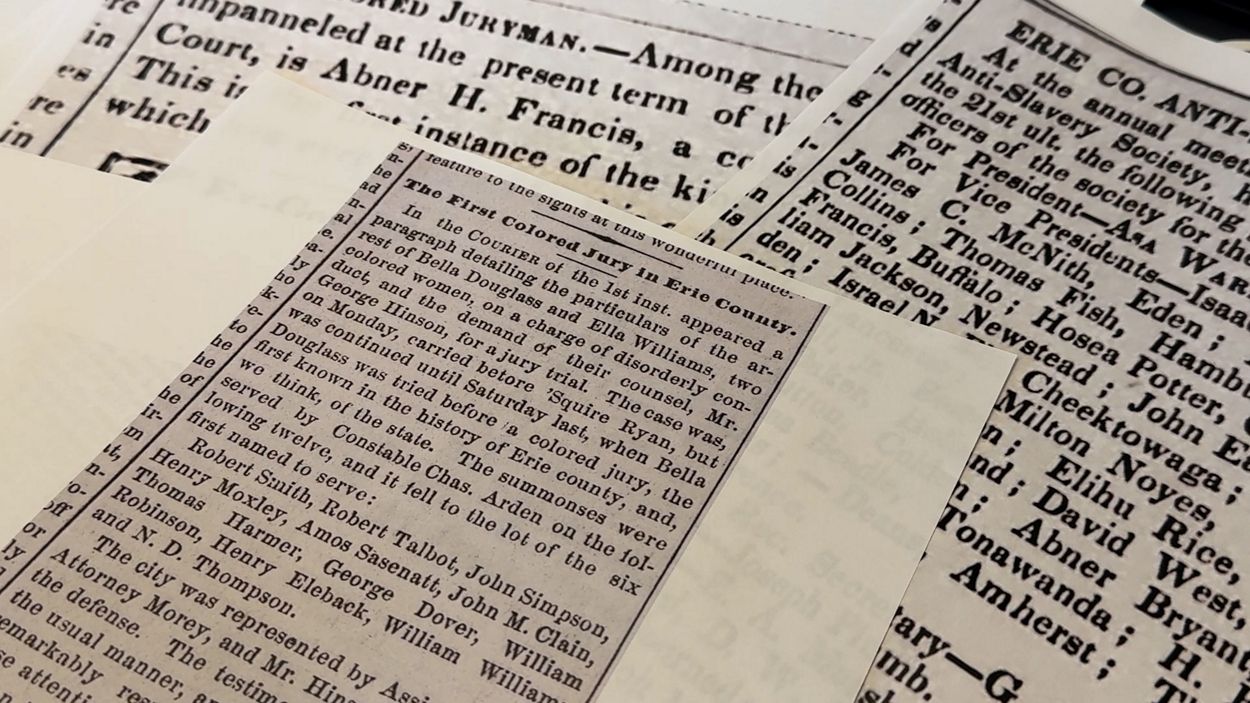 JURYMAN.—Among the
impanneled at the present term of
Court, is Abner H. Francis, a
This is first instance of the
which
feature to the sights at this wonderful place.
The First Colored Jury in Erie County.
In the COURIER of the 1st inst. appeared a
paragraph detailing the particulars of the ar-
rest of Bella Douglass and Ella Williams, two
colored women, on a charge of disorderly con-
duct, and the demand of their counsel, Mr.
George Hinson, for a jury trial. The case was,
on Monday, carried before 'Squire Ryan, but
was continued until Saturday last, when Bella
Douglass was tried before a colored jury, the
first known in the history of Erie county; and,
we think, of the state. The summonses were
served by Constable Chas. Arden on the fol-
lowing twelve, and it fell to the lot of the six
first named to serve:
Robert Smith, Robert Talbot, John Simpson,
Henry Moxley, Amos Sasenatt, John M. Clain,
Thomas Harmer, George Dover, William
Robinson, Henry Eleback, William William
and N. D. Thompson.
The city was represented by Assi
Attorney Morey, and Mr. Hin
the defense. The testim
the usual manner, a
emarkably res
se attenti
ERIE CO. ANTI-
At the annual meet
Anti-Slavery Society,
the 21st ult. the following
officers of the society for the
For President—ASA WAR
For Vice Presidents—Isaac
James C. McNith, Eden;
Collins; Thomas Fish, Hambu
Francis, Buffalo; Hosea Potter,
liam Jackson, Newstead; John Ea
den; Israel N
Cheektowaga;
Milton Noyes,
n; Elihu Rice,
nd; David West,
n; Abner Bryant
Tonawanda; H.
Amherst;
tary—G
mb.